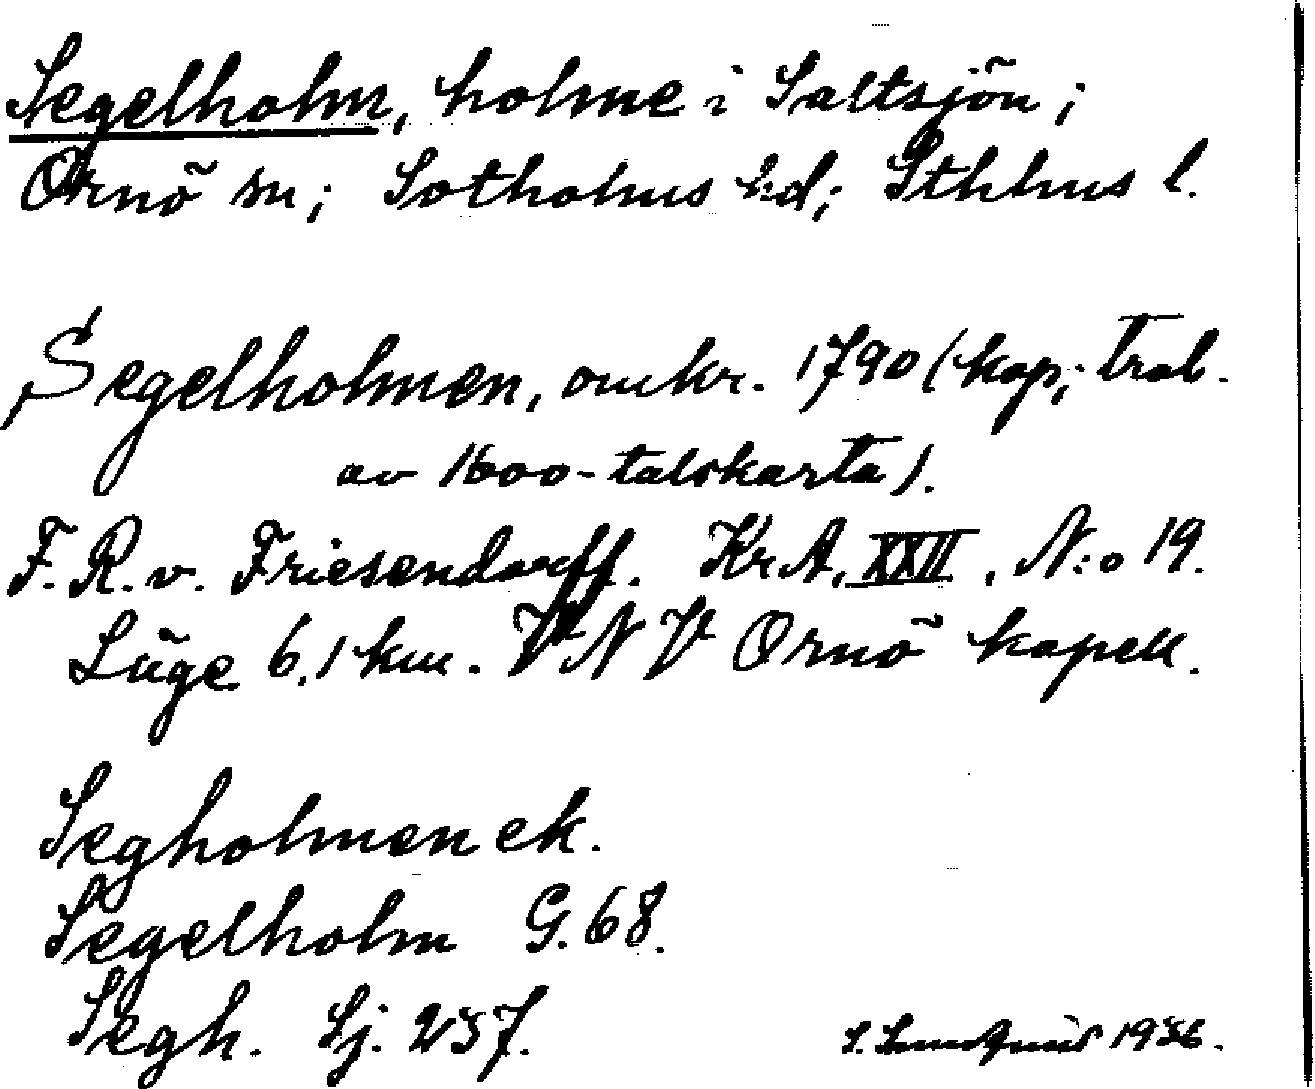 Segelholm, holme i Saltsjön;
Ornö sn; Sotholms hd; Sthlms l.
Segelholmen, omkr. 1790 (kop; trol.
av 1600-talskarta).
F. R. v. Friesendorff. Kr. A. XXII, N:o 19.
Läge 6,1 km. VNV Ornö kapell.
Segholmen ek.
Segelholm G. 68.
Segh. Sj. 257.
S. 1936.